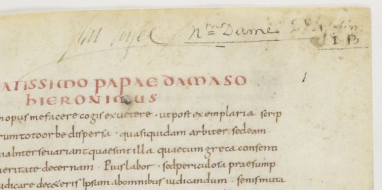 Nre Dame
I B
ATISSIMO PAPAE DAMASO
HIERONIMUS
nopus mefacere cogis exuetere · ut post exemplaria scrip
rumtotoorbe dispersa · quasiquidam arbiter sedeam
inter se uariant quaesint illa quaecum greca consenti
ueritate decernam · Pius labor · sed periculosa praesump
iudicare deceteris ipsum abomnibus iudicandum · senis muta